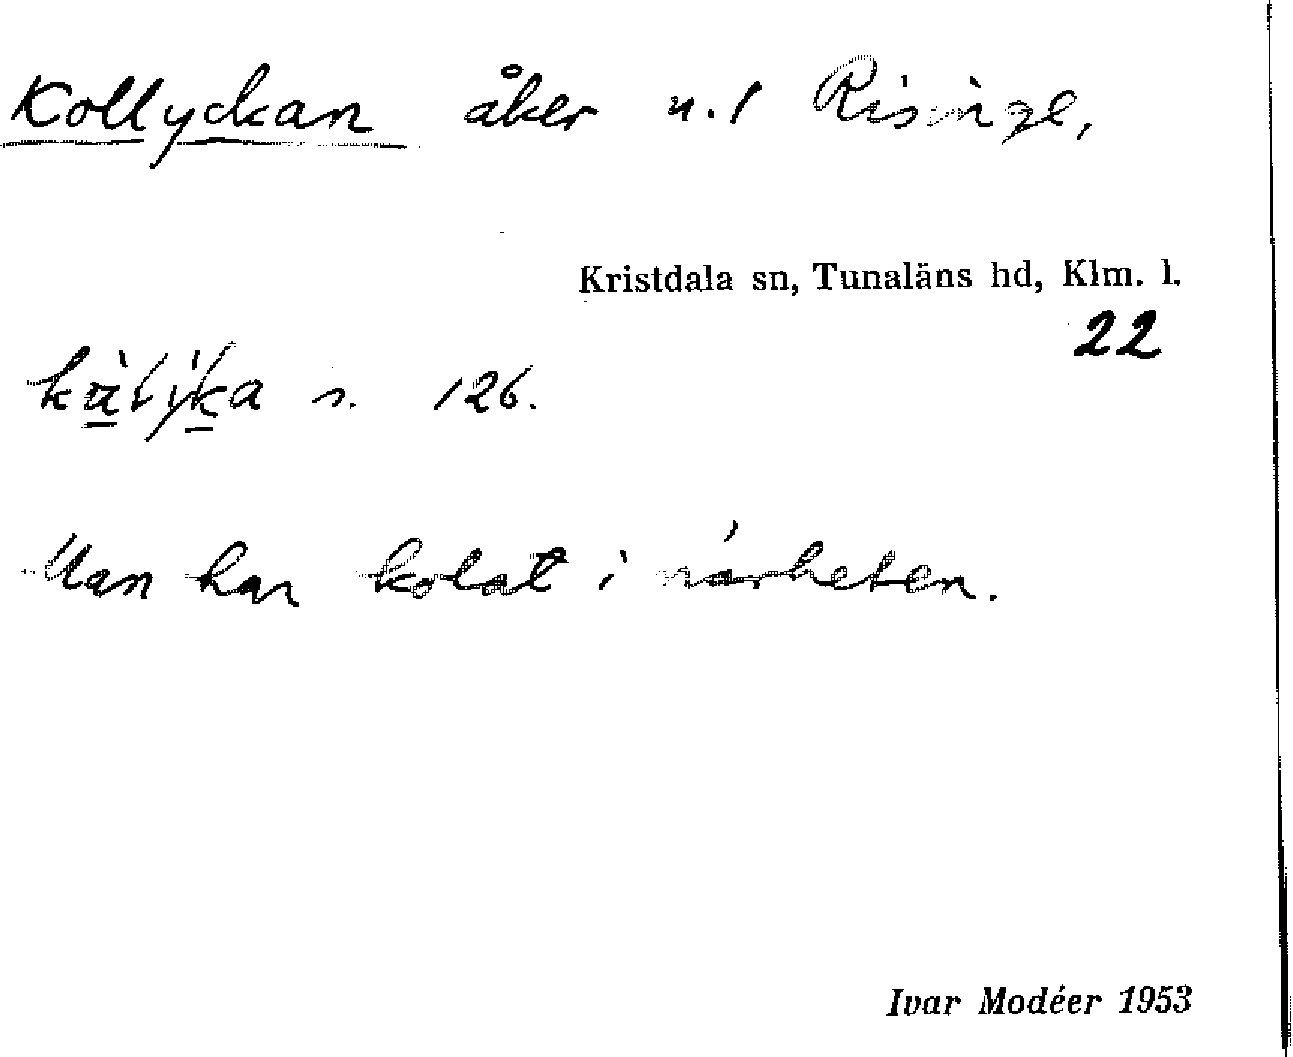 Kollyckan åker n.1 Risinge,
Kristdala sn, Tunaläns hd, Klm. l.
22
s. 126.
Man har kolat i närheten.
Ivar Modéer 1953